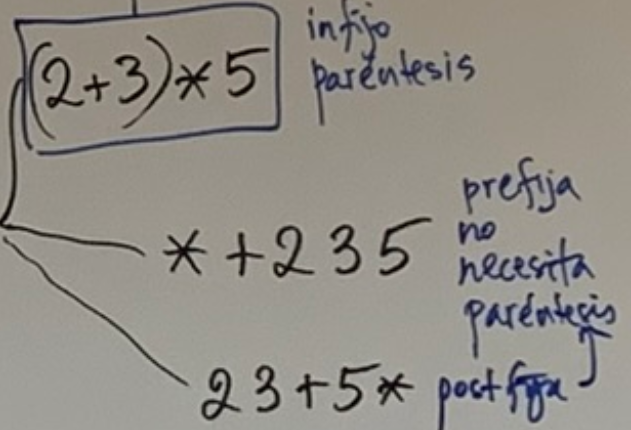 (2+3)*5
infijo
paréntesis
*+235
prefija
no
necesita
paréntesis
23+5*
postfija